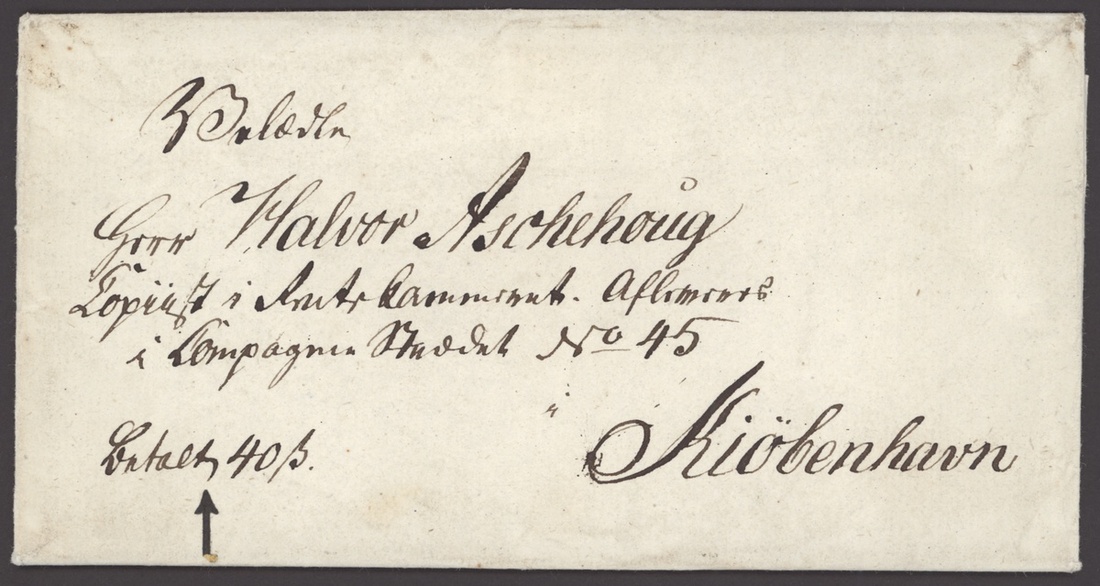 Velædle
Herr Halvor Aschehoug
Copiist i Rentekammeret. Afleveres
i Compagnie Strædet No 45
i
Kiöbenhavn
Betalt 40 ß.